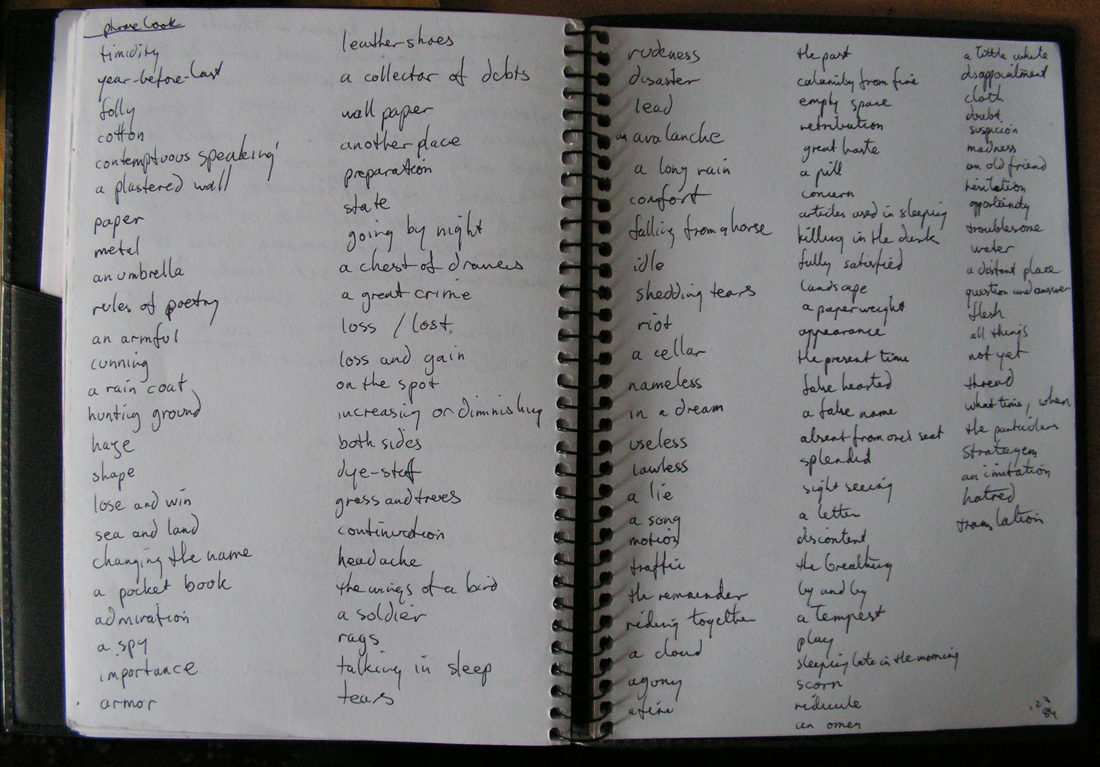 phrase book
timidity
year-before-last
folly
cotton
contemptuous speaking'
a plastered wall
paper
metal
an umbrella
rules of poetry
an armful
cunning
a rain coat
hunting ground
haze
shape
lose and win
sea and land
changing the name
a pocket book
admiration
a spy
importance
armor
leather shoes
a collector of debts
wall paper
another place
preparation
state
going by night
a chest of drawers
a great crime
loss / lost.
loss and gain
on the spot
increasing or diminishing
both sides
dye-stuff
grass and trees
continuation
headache
the wings of a bird
a soldier
rags
talking in sleep
tears
rudeness
disaster
lead
an avalanche
a long rain
comfort
falling from a horse
idle
shedding tears
riot
a cellar
nameless
in a dream
useless
lawless
a lie
a song
motion
traffic
the remainder
riding together
a cloud
agony
a fire
the past
calamity from fire
empty space
retribution
great haste
a pill
concern
articles used in sleeping
killing in the dark
fully satisfied
landscape
a paperweight
appearance
the present time
false hearted
a false name
absent from one's seat
splendid
sight seeing
a letter
discontent
the breathing
by and by
a tempest
play
sleeping late in the morning
scorn
ridicule
an omen
a little while
disappointment
cloth
doubt
suspicion
madness
an old friend
hesitation
opportunity
troublesome
water
a distant place
question and answer
flesh
all things
not yet
thread
what time, when
the particulars
stratagem
an imitation
hatred
translation